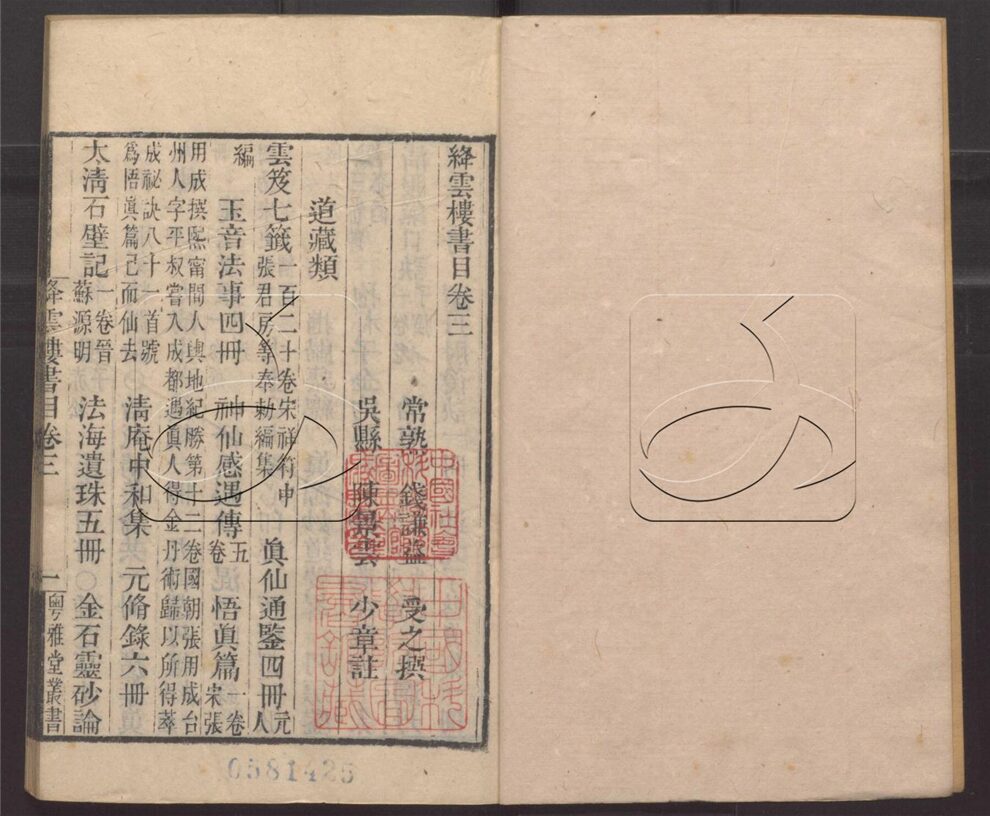 絳雲樓書目卷三
常熟 錢謙益 受之撰
吳縣 陳景雲 少章註
道藏類
雲笈七籤 一百二十卷宋祥符中張君房等奉勅編集 眞仙通鑒四冊 元人
編 玉音法事四冊 神仙感遇傳 五卷 悟眞篇 一卷宋張
用成撰熙甯間人輿地紀勝第十二卷國朝張用成台
州人字平叔嘗入成都遇眞人得金丹術歸以所得萃
成祕訣八十一首號
爲悟眞篇己而仙去 清庵中和集 元脩錄六冊
太清石壁記 一卷晉蘇源明 法海遺珠五冊〇金石靈砂論
絳雲樓書目卷三 一 粵雅堂叢書
0581425